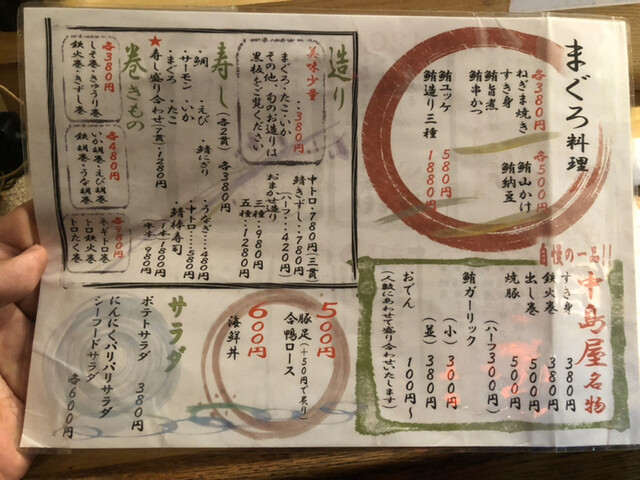 まぐろ料理
各380円
ねぎま焼き
すき身
鮪旨煮
鮪串かつ
各500円
鮪山かけ
鮪納豆
鮪ユッケ 580円
鮪造り三種 1880円
造り
美味少量
・・・380円
まぐろ・たこ・いか
その他、旬のお造りは
黒板をご覧ください
中トロ・780円(三貫)
鯖きずし・・780円
(ハーフ・・420円)
おまかせ造り
三種・・980円
五種・・1280円
寿し(各2貫)
各380円
・鯛 ・えび ・鯖にぎり
・サーモン ・いか
・まぐろ ・たこ
・うなぎ・・480円
・中トロ・・580円
★寿し盛り合わせ(7貫)・1280円
・鯖棒寿司
1本 1800円
半本 980円
巻きもの
各380円
しそ巻・きゅうり巻
鉄火巻・きずし巻
各480円
いか胡巻・えび胡巻
鉄胡巻・うな胡巻
ネギトロ巻
トロ鉄火巻
トロたく巻
自慢の一品!!
中島屋名物
すき身 380円
鉄火巻 380円
出し巻 500円
焼豚 500円
(ハーフ300円)
鮪ガーリック
(小) 300円
(並) 380円
おでん 100円〜
(人数にあわせて盛り合わせいたします)
500円
豚足(+50円で炙り)
合鴨ロース
600円
海鮮丼
サラダ
ポテトサラダ 380円
にんにくパリパリサラダ
シーフードサラダ
各600円